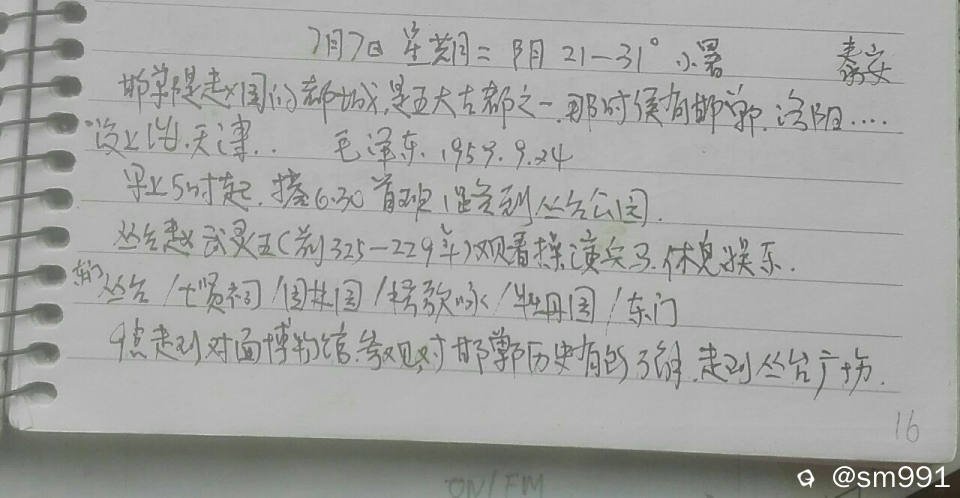 7月7日 星期二 阴 21—31° 小暑
邯郸是赵国的都城,是五大古都之一.那时候有邯郸.洛阳....
没上海.天津.. 毛泽东.1959.9.24
早上5时起.搭6.30首班1路车到丛台公园.
丛台赵武灵王(前325—229年)观看操演兵马.休息娱乐.
东门 丛台/七贤祠/园林园/梅歌咏/牡丹园/东门
9点走到对面博物馆参观对邯郸历史有所了解.走到丛台广场.
16
ON/FM
@sm991